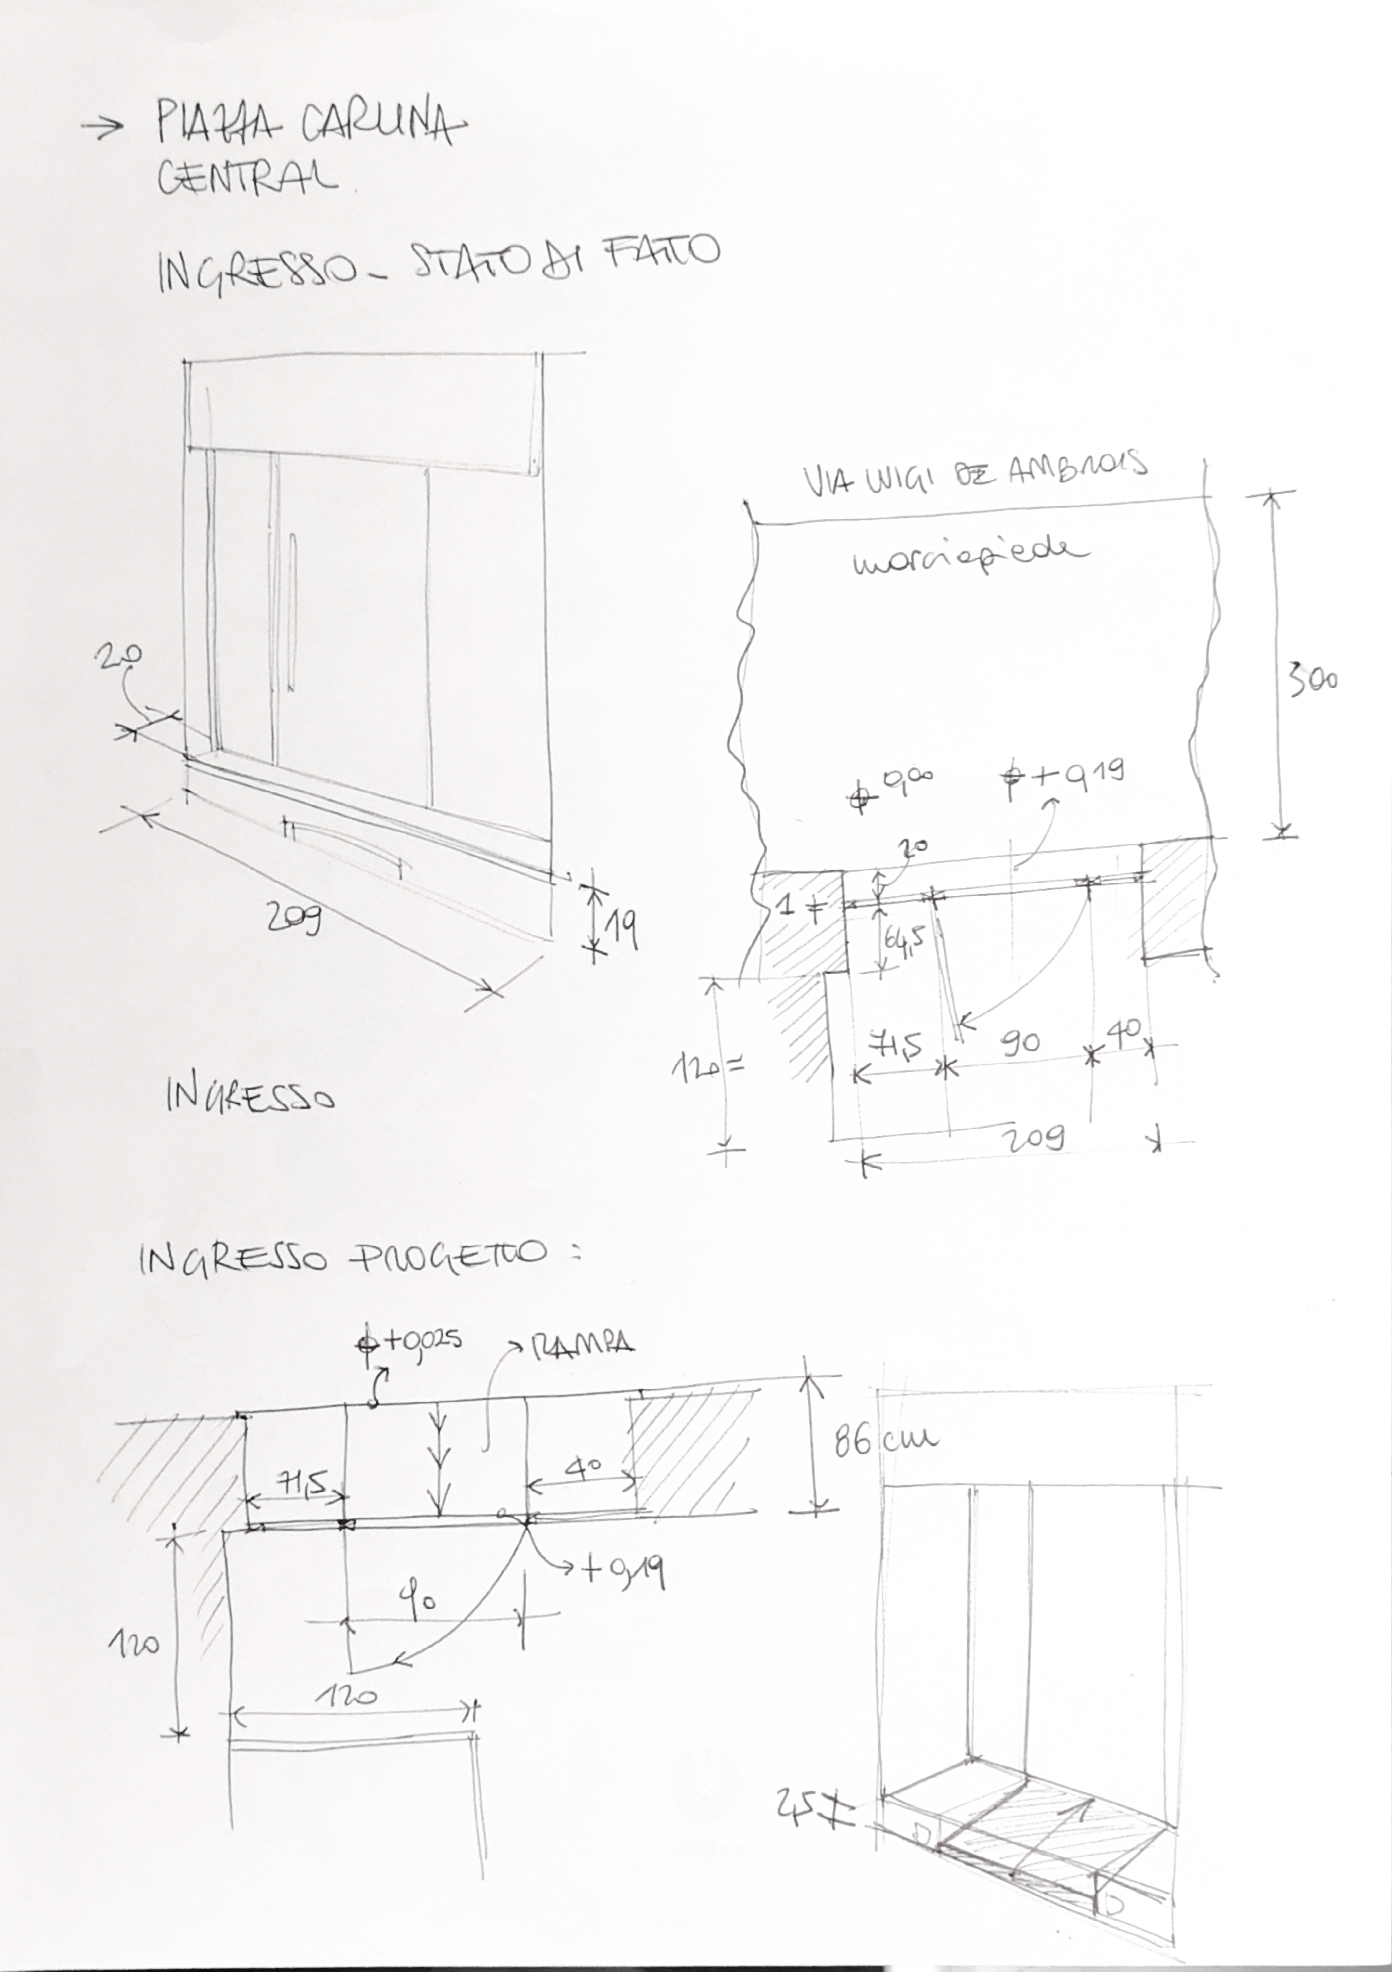 → PIAZZA CARLINA
CENTRAL
INGRESSO - STATO DI FATTO
VIA LUIGI DE AMBROIS
marciapiede
300
20
209
19
0,00
+0,19
20
1
64,5
71,5
90
40
120=
209
INGRESSO
INGRESSO PROGETTO:
+0,025
RAMPA
86 cm
71,5
40
+0,19
90
120
120
2,5
D
D